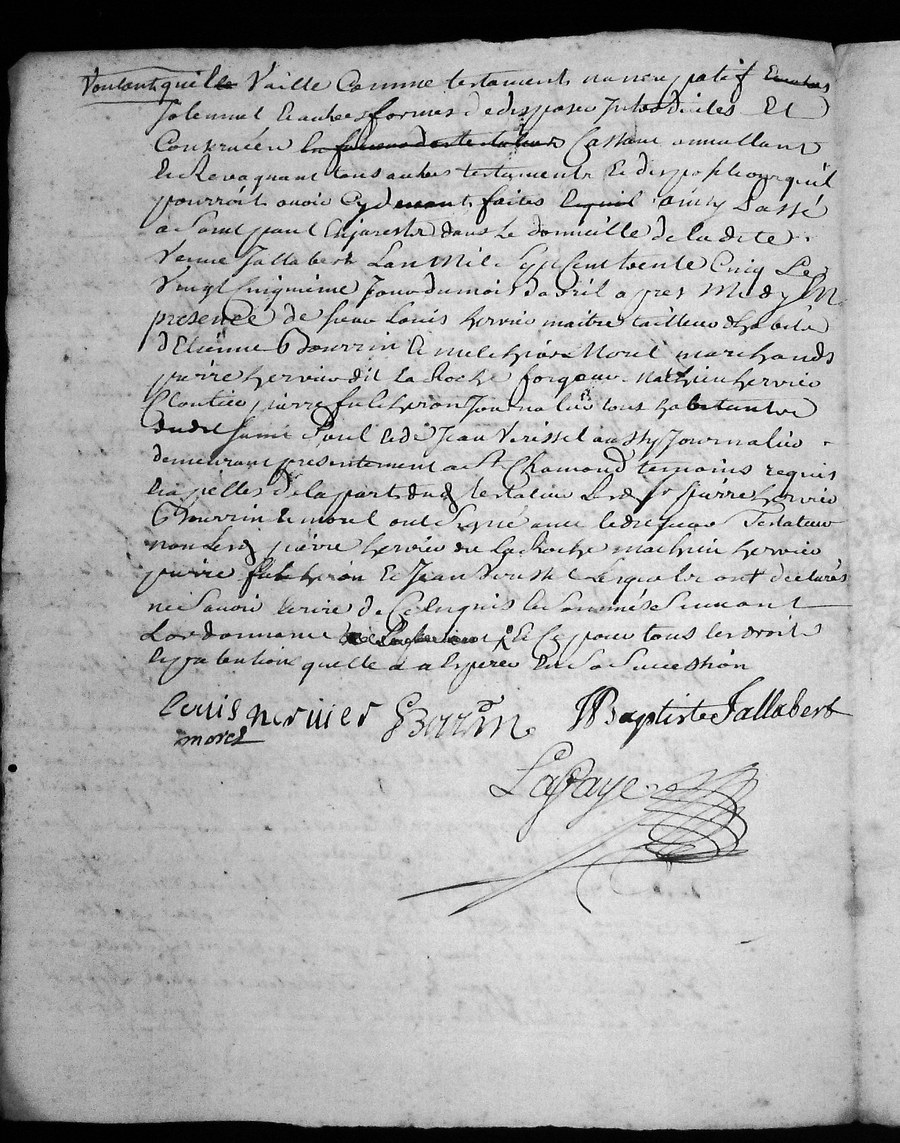 Voulant quil Vaille Comme testament nuncupatif
Solennel et autres formes de disposer Juts diciles Et
Conscuéen Cassant annullant
et Revoquant tous autres testaments et dispositions quil
pourroit avoir Cydevant faites ainsy passé
a Saint paul En jarestz dans le domicille de la dite
Veuve Jallabert Lan Mil Sept Cent trente Cinq Le
Vingt Cinquieme Jour du mois davril apres Midy En
presence de sieur Louis hervier maitre tailleur dhabits
d'Etienne Bourrin et melchior Morel marchands
pierre hervier dit La Roche forgeur mathieu hervier
Cloutier pierre fulcheron Journalier tous habitants
dudit Saint Paul et de Jean Verissel aussy Journalier
demeurant presentement a St Chamond temoins requis
et apelles de la part dud testateur Lesd Srs hervier
Bourrin et morel ont Signé avec ledit sieur Testateur
non Lesd pierre hervier dit La Roche mathieu hervier
pierre fulcheron et Jean Lesquels ont declarés
ne Savoir Ecrire de Ce Enquis et Sommés Suivant
Lordonnance et Ce pour tous les droits
et pretentions quelle a a Esperer En Sa Succession
Louis hervier Borrin JBaptiste Jallabert
morel
Lafaye